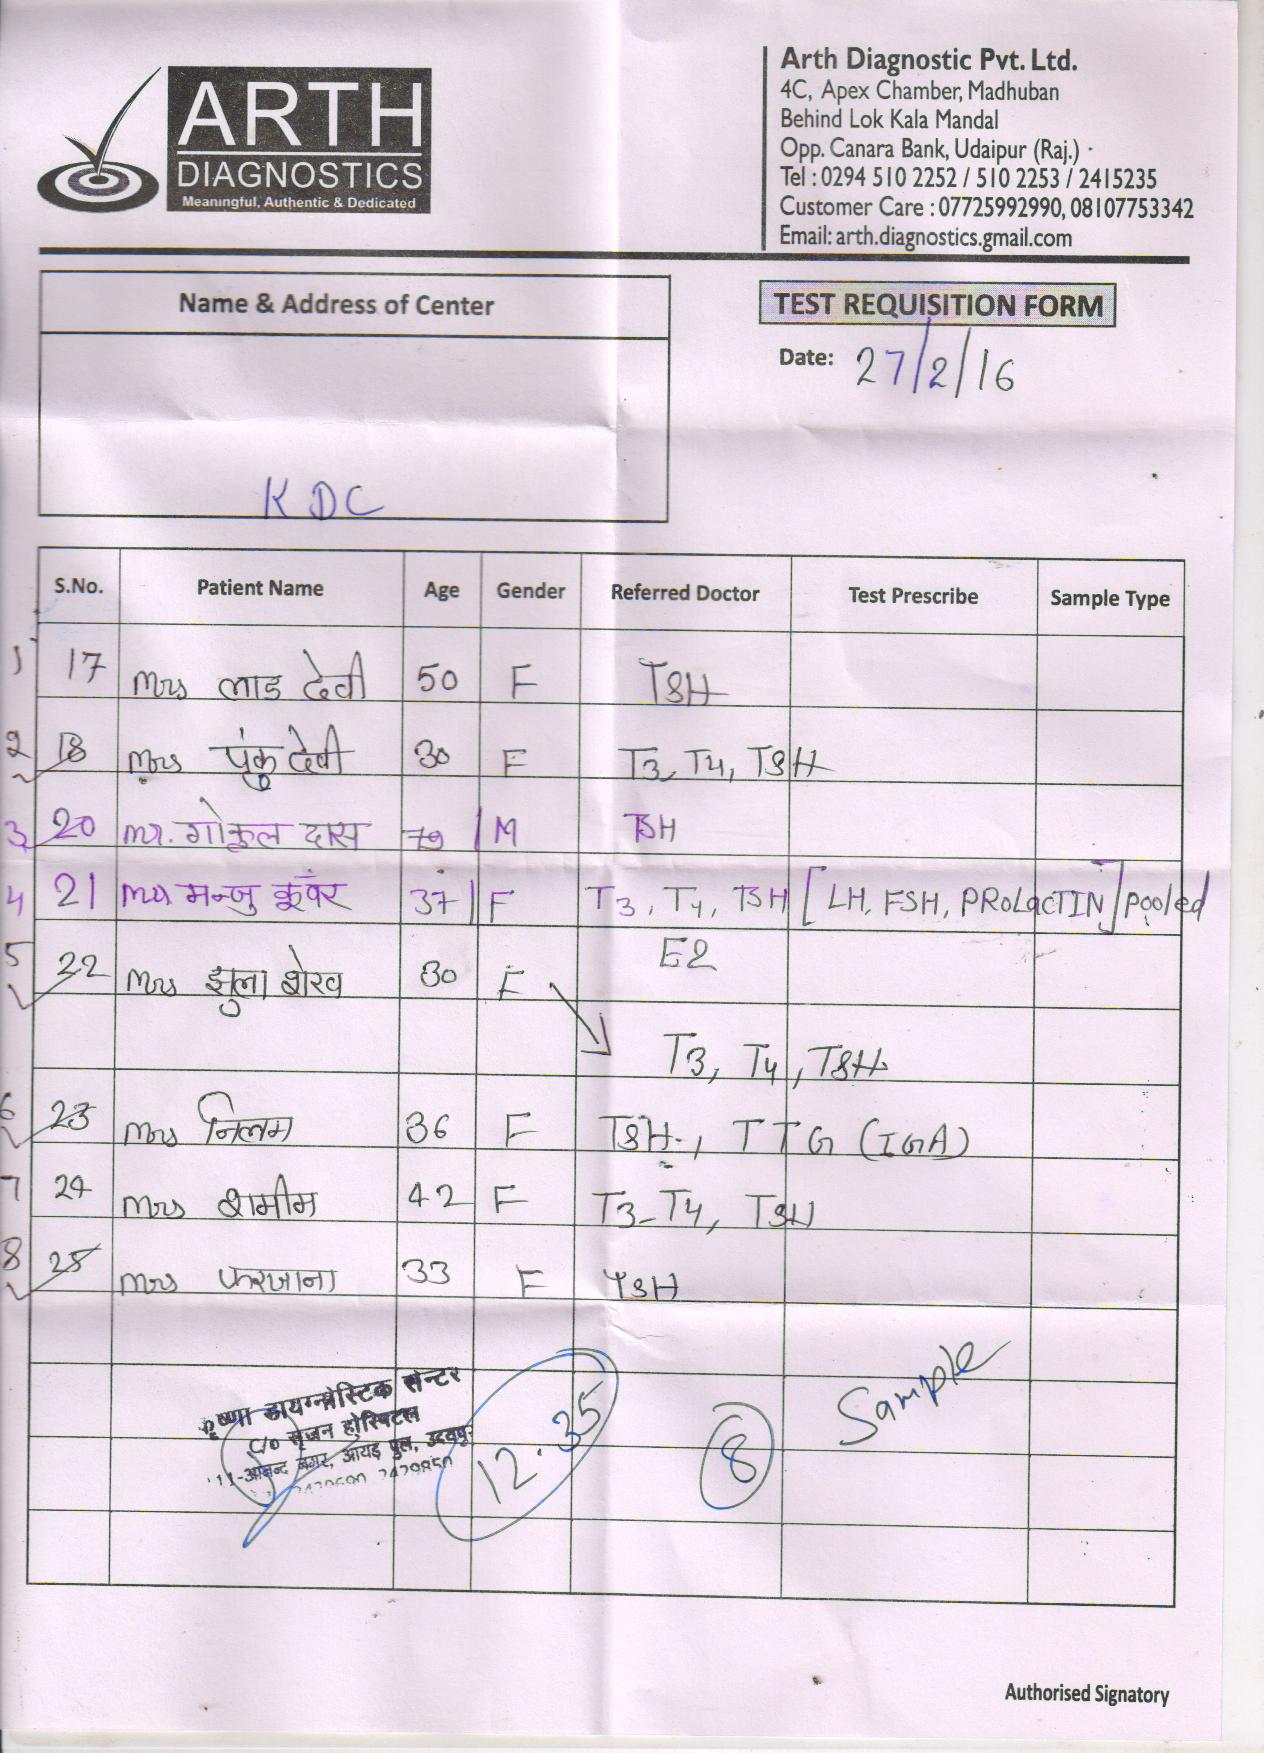 ARTH
DIAGNOSTICS
Meaningful, Authentic & Dedicated
Arth Diagnostic Pvt. Ltd.
4C, Apex Chamber, Madhuban
Behind Lok Kala Mandal
Opp. Canara Bank, Udaipur (Raj.)
Tel : 0294 510 2252 / 510 2253 / 2415235
Customer Care : 07725992990, 08107753342
Email: arth.diagnostics.gmail.com
Name & Address of Center
KDC
TEST REQUISITION FORM
Date: 27/2/16
S.No. Patient Name Age Gender Referred Doctor Test Prescribe Sample Type
1 17 Mrs लाड देवी 50 F TSH
2 18 Mrs पंकु देवी 30 F T3, T4, TSH
3 20 Mr. गोकुल दास 79 M TSH
4 21 Mrs मन्जु कुंवर 37 F T3, T4, TSH [LH, FSH, PROLACTIN] pooled
E2
5 22 Mrs झुला शेख 30 F
T3, T4, TSH
6 23 Mrs निलम 36 F TSH, TTG (IGA)
7 24 Mrs शमीम 42 F T3, T4, TSH
8 25 Mrs फरजाना 33 F TSH
कृष्णा डायग्नोस्टिक सेन्टर
C/o सृजन हॉस्पिटल
11-आनन्द नगर, आयड़ पुल, उदयपुर
2429850
12.35
8
Sample
Authorised Signatory